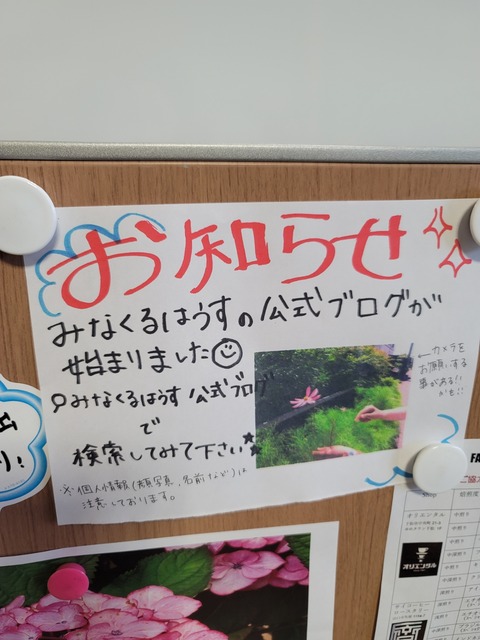 お知らせ
みなくるはうすの公式ブログが
始まりました
みなくるはうす公式ブログ
で
検索してみて下さい
※個人情報(顔写真、名前など)は
注意しております。
←カメラを
お願いする
事がある!!
かも!!
り!
FA
オリエンタル
オリエンタル
中煎り